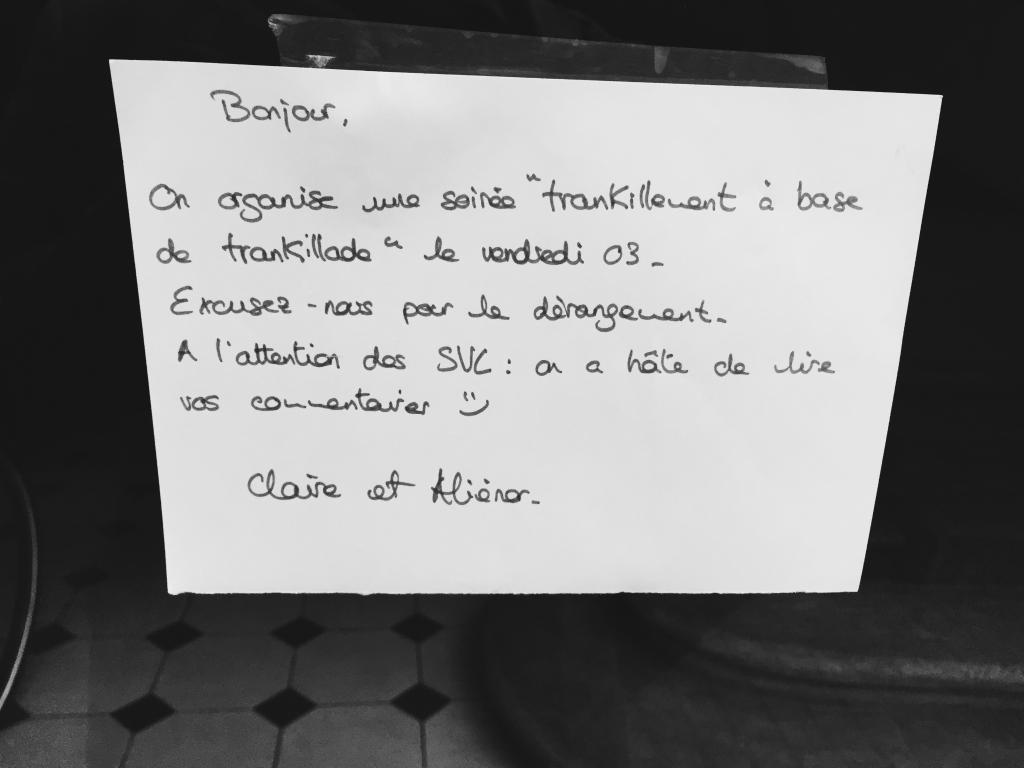 Bonjour,
On organise une soirée "trankillement à base
de trankillade" le vendredi 03.
Excusez-nous pour le dérangement.
A l'attention des SVC : on a hâte de lire
vos commentaires :)
Claire et Aliénor.